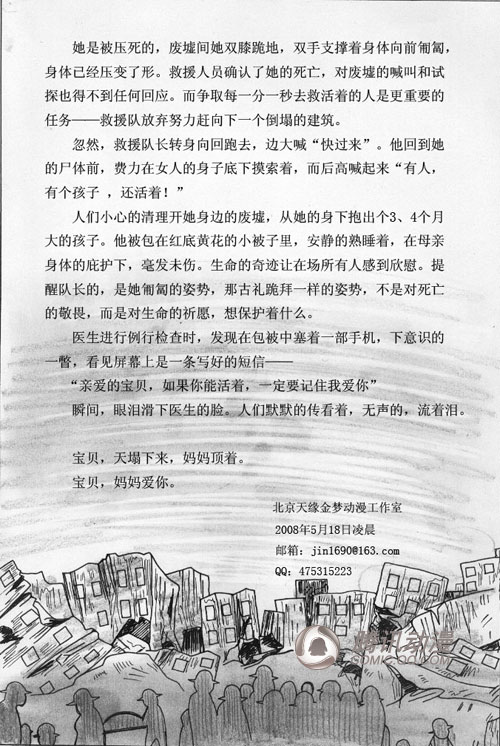 她是被压死的，废墟间她双膝跪地，双手支撑着身体向前匍匐，
身体已经压变了形。救援人员确认了她的死亡，对废墟的喊叫和试
探也得不到任何回应。而争取每一分一秒去救活着的人是更重要的
任务——救援队放弃努力赶向下一个倒塌的建筑。
忽然，救援队长转身向回跑去，边大喊“快过来”。他回到她
的尸体前，费力在女人的身子底下摸索着，而后高喊起来“有人，
有个孩子 ，还活着！”
人们小心的清理开她身边的废墟，从她的身下抱出个3、4个月
大的孩子。他被包在红底黄花的小被子里，安静的熟睡着，在母亲
身体的庇护下，毫发未伤。生命的奇迹让在场所有人感到欣慰。提
醒队长的，是她匍匐的姿势，那古礼跪拜一样的姿势，不是对死亡
的敬畏，而是对生命的祈愿，想保护着什么。
医生进行例行检查时，发现在包被中塞着一部手机，下意识的
一瞥，看见屏幕上是一条写好的短信——
“亲爱的宝贝，如果你能活着，一定要记住我爱你”
瞬间，眼泪滑下医生的脸。人们默默的传看着，无声的，流着泪。
宝贝，天塌下来，妈妈顶着。
宝贝，妈妈爱你。
北京天缘金梦动漫工作室
2008年5月18日凌晨
邮箱：jin1690@163.com
QQ：475315223
腾讯动漫
COMIC.QQ.COM